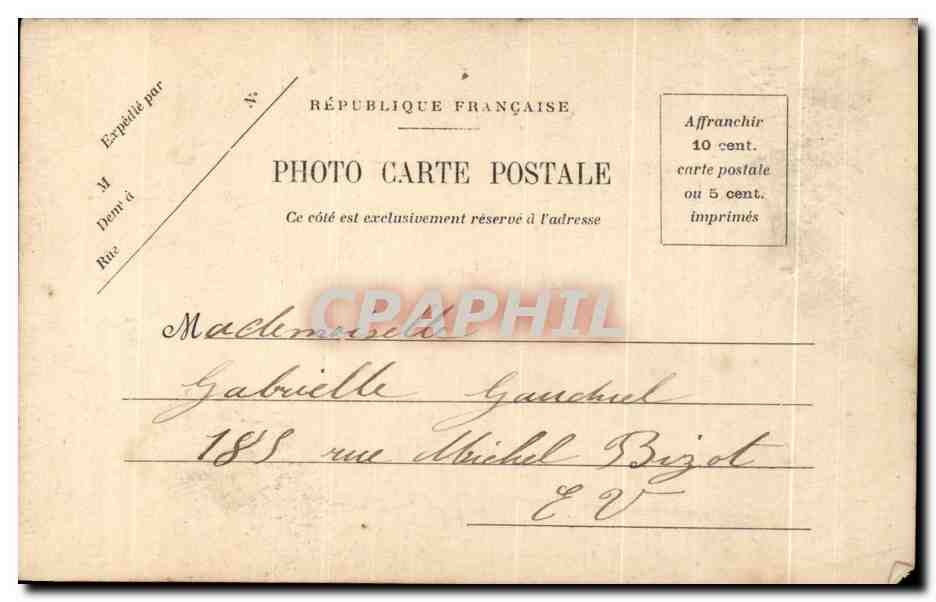 Expédié par
M
Demt à
Rue
N°
RÉPUBLIQUE FRANÇAISE
PHOTO CARTE POSTALE
Ce côté est exclusivement réservé à l'adresse
Affranchir
10 cent.
carte postale
ou 5 cent.
imprimés
CPAPHIL
Mademoiselle
Gabrielle
185 rue Michel Bizot
E V